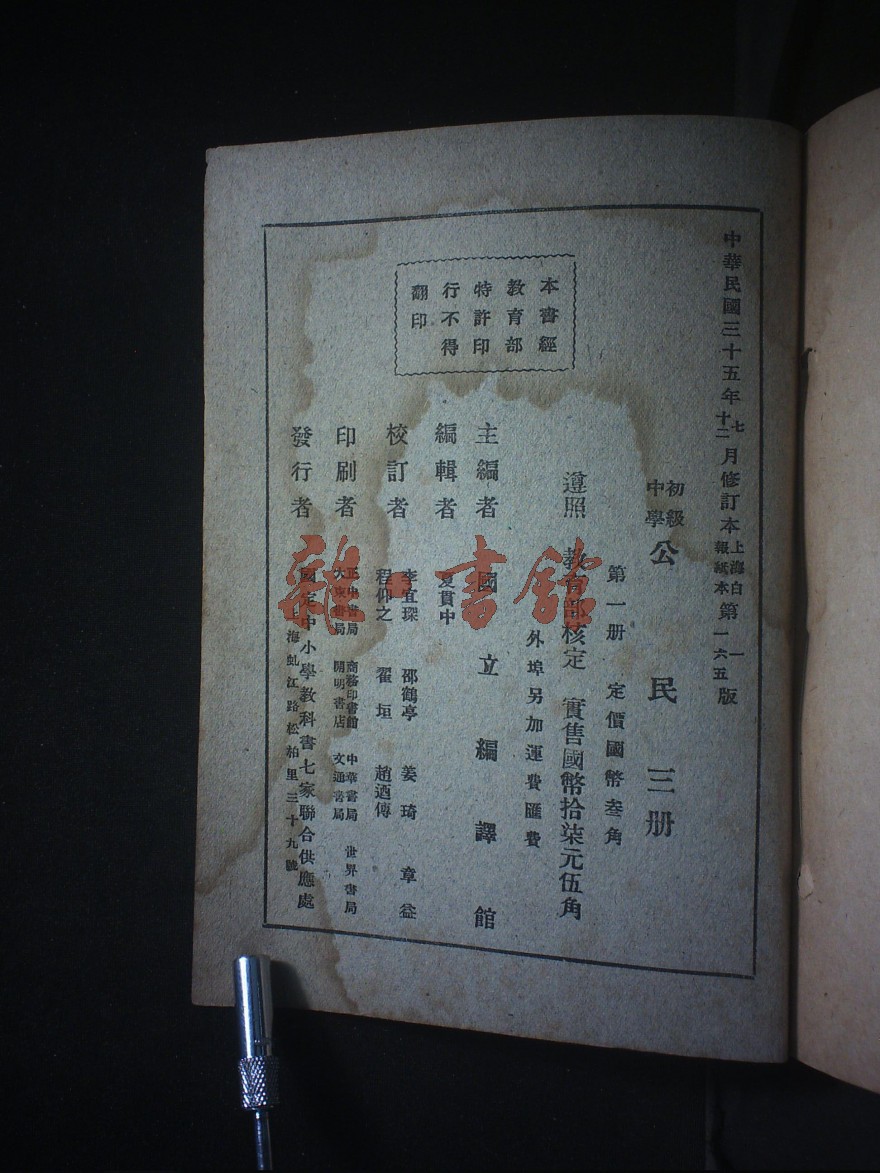 中華民國三十五年七月修訂本上海白報紙本第一六五版
十二
初級中學公民三册
第一册 定價國幣叁角
遵照 教育部核定 實售國幣拾柒元伍角
外埠另加運費匯費
主編者 國立編譯館
編輯者 夏貫中
校訂者 李宜琛 邵鶴亭 姜琦 章益
程仰之 翟垣 趙迺傳
印刷者 正中書局 商務印書館 中華書局 世界書局
大東書局 開明書店 文通書局
發行者 國定中小學教科書七家聯合供應處
上海虬江路松柏里三十九號
本書經
教育部
特許印
行不得
翻印
雜·書館